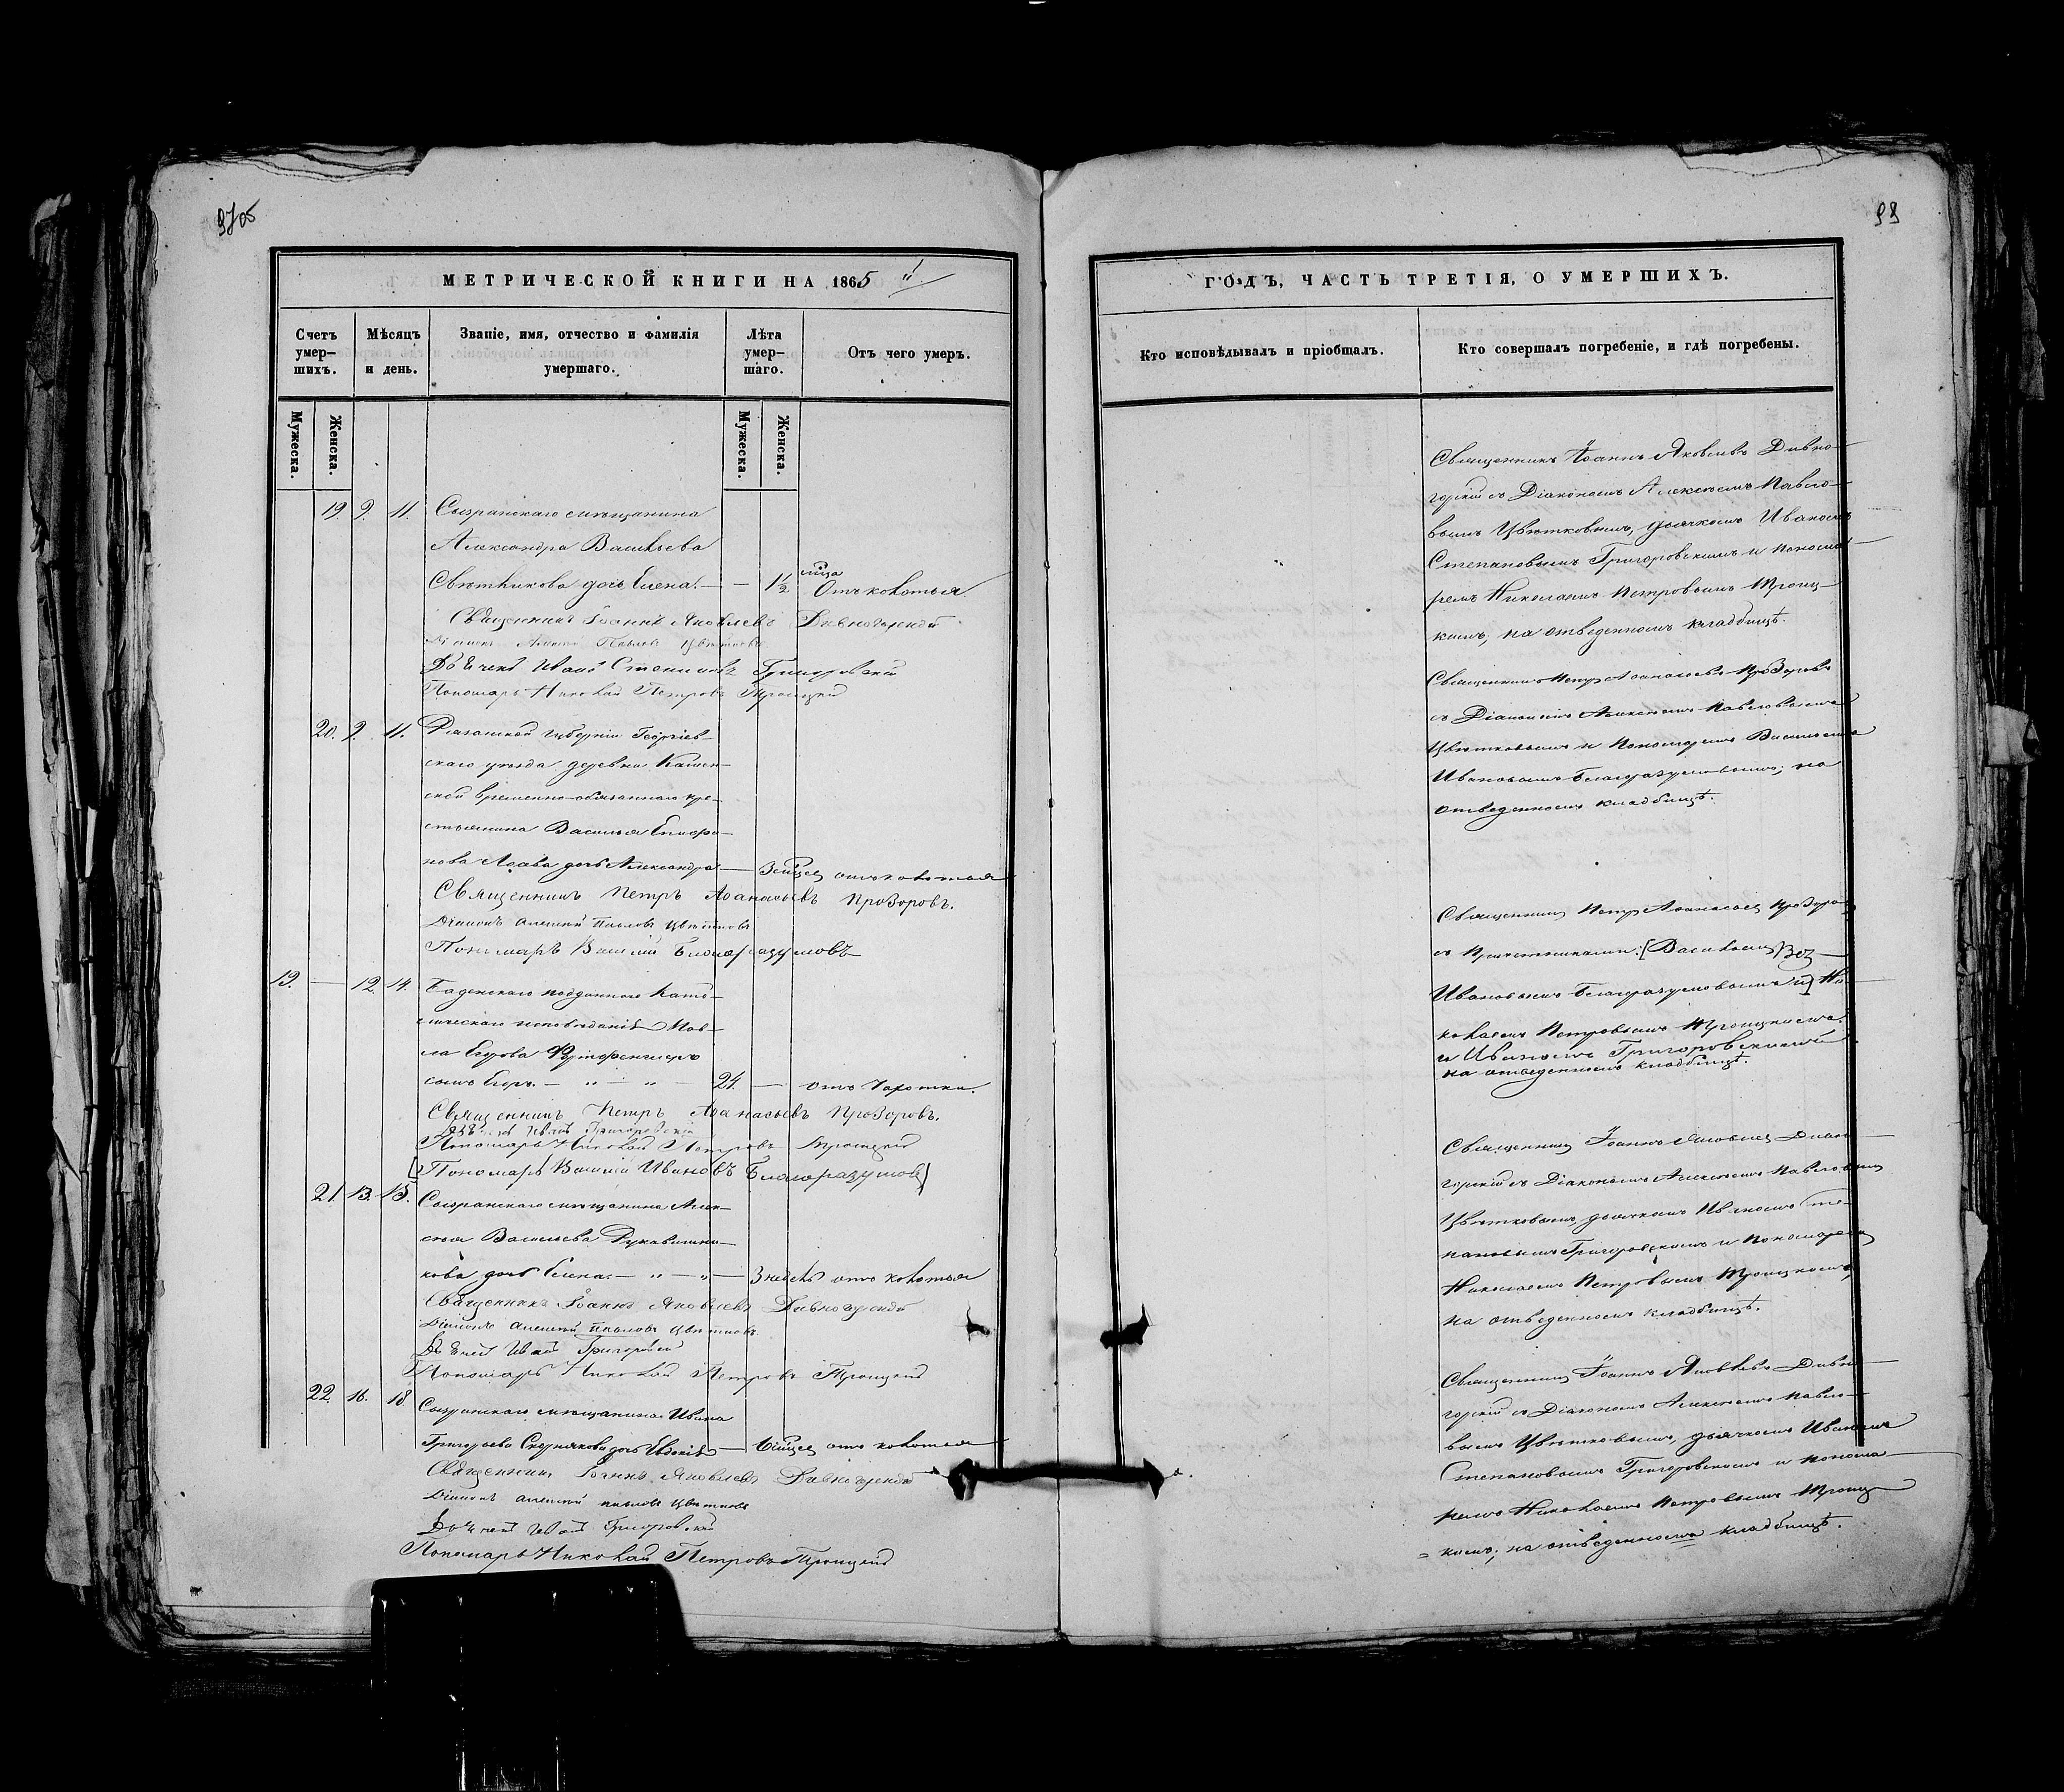 МЕТРИЧЕСКОЙ КНИГИ НА 1865
Счетъ умер–шихъ.
Мѣсяцъ и день.
Званіе, имя, отчество и фамилія умершаго.
Лѣта умер–шаго.
Отъ чего умеръ.
Мужеска.
Женска.
Мужеска.
Женска.
19. 9. 11. Сызранскаго мѣщанина
Александра Васильева
дочь Елена. — — 1½ Отъ колотья
Священникъ Іоаннъ Яковлевъ Дивногорскій
Діаконъ Алексій Павловъ Цвѣтковъ
Дьячекъ Иванъ Степановъ Григоровскій
Пономарь Николай Петровъ Троицкій
20. 9. 11. губерніи
скаго уѣзда деревни
ской временно–обязаннаго кре–
стьянина Василья
дочь Александра — отъ колотья
Священникъ Петръ Аѳанасьевъ Прозоровъ.
Діаконъ Алексій Павловъ Цвѣтковъ
Пономарь Василій Благоразумовъ
19. — 12. 14. Баденскаго подданнаго Като–
лическаго исповѣданія
Егорова
сынъ Егоръ. — " — " — 24 — отъ чахотки.
Священникъ Петръ Аѳанасьевъ Прозоровъ.
Дьячекъ Иванъ Григоровскій
Пономарь Николай Петровъ Троицкій
[Пономарь Василій Ивановъ Благоразумовъ]
21. 13. 15. Сызранскаго мѣщанина Алек–
сѣя Васильева Рукавишни–
кова дочь Елена. — " — " — 3 недѣль отъ колотья
Священникъ Іоаннъ Яковлевъ Дивногорскій
Діаконъ Алексій Павловъ Цвѣтковъ
Дьячекъ Иванъ Григоровскій
Пономарь Николай Петровъ Троицкій
22. 16. 18 Сызранскаго мѣщанина Ивана
Григорьева дочь Евдокія — отъ колотья
Священникъ Іоаннъ Яковлевъ Дивногорскій
Діаконъ Алексій Павловъ Цвѣтковъ
Дьячекъ Иванъ Григоровскій
Пономарь Николай Петровъ Троицкій
99
ГОДЪ, ЧАСТЬ ТРЕТІЯ, О УМЕРШИХЪ.
Кто исповѣдывалъ и пріобщалъ.
Кто совершалъ погребеніе, и гдѣ погребены.
Священникъ Іоаннъ Яковлевъ Дивно–
горскій съ Діакономъ Алексѣемъ Павло–
вымъ Цвѣтковымъ, дьячкомъ Иваномъ
Степановымъ Григоровскимъ и понома–
ремъ Николаемъ Петровымъ Троиц–
кимъ, на отведенномъ кладбищѣ.
Священникъ Петръ Аѳанасьевъ Прозоровъ
съ Діакономъ Алексѣемъ Павловымъ
Цвѣтковымъ и Пономаремъ Васильемъ
Ивановымъ Благоразумовымъ, на
отведенномъ кладбищѣ.
Священникъ Петръ Аѳанасьевъ Прозоровъ
съ Причетниками: [Васильемъ]
Ивановымъ Благоразумовымъ и] Ни–
колаемъ Петровымъ Троицкимъ
и Иваномъ Григоровскимъ
на отведенномъ кладбищѣ.
Священникъ Іоаннъ Яковлевъ Дивно–
горскій съ Діакономъ Алексѣемъ Павловымъ
Цвѣтковымъ, дьячкомъ Иваномъ Сте–
пановымъ Григоровскимъ и Пономаремъ
Николаемъ Петровымъ Троицкимъ,
на отведенномъ кладбищѣ.
Священникъ Іоаннъ Яковлевъ Дивно–
горскій съ Діакономъ Алексѣемъ Павло–
вымъ Цвѣтковымъ, дьячкомъ Иваномъ
Степановымъ Григоровскимъ и понома–
ремъ Николаемъ Петровымъ Троиц–
кимъ, на отведенномъ кладбищѣ.